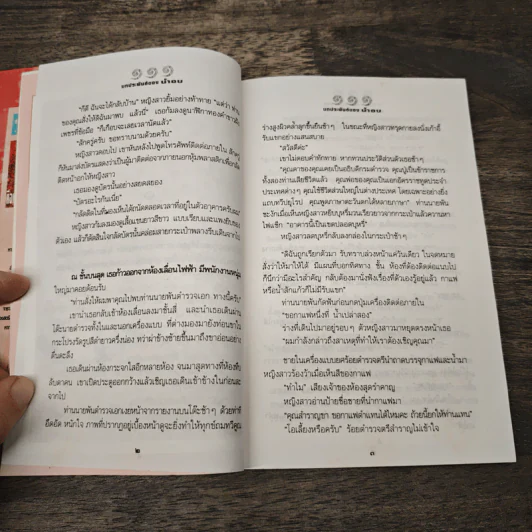 ๑๑๑
บทประพันธ์ของ บำตบ
"ก็ดี ฉันจะได้กลับบ้าน" หญิงสาวยิ้มอย่างท้าทาย "แต่ว่า ท่าน
ของคุณสั่งให้ดิฉันมาพบ แล้วนี่" เธอก้มลงดูนาฬิกาทองคำขาวฝัง
เพชรที่ข้อมือ "ก็เกือบจะเลยเวลานัดแล้ว"
"สักครู่ครับ ขอทราบนามด้วยครับ"
หญิงสาวตอบไป เขาหันหลังไปพูดโทรศัพท์ติดต่อภายใน
ก็หันมาส่งบัตรแสดงว่าเป็นผู้มาติดต่อจากภายนอกหุ้มพลาสติกเพื่อ
ติดหน้าอกให้หญิงสาว
เธอมองดูบัตรนั้นอย่างสยดสยอง
"บัตรอะไรกันเนี่ย"
"กลัดติดในที่มองเห็นได้ถนัดตลอดเวลาที่อยู่ในตัวอาคารครับ
หญิงสาวก้มลงมองดูเสื้อแขนยาวสีขาว แบบเรียบและแพงยับของ
ตัวเอง แล้วก็ตัดสินใจกลัดบัตรนั้นกับสายกระเป๋า
ณ ชั้นบนสุด เธอก้าวออกจากห้องเลื่อนไฟฟ้า มีพนักงานหนุ่ม
ใหญ่มาคอยต้อนรับ
"ท่านสั่งให้ผมพาคุณไปพบท่านนายพันตำรวจเอก ทางนี้ครับ"
เขานำเธอกลับเข้าห้องเลื่อนลงมาชั้นสี่ และนำเธอเดินผ่าน
โต๊ะนายตำรวจทั้งในและนอกเครื่องแบบ ที่ต่างมองมายังท่อนขา
กระโปรงรัดรูปสีดำยาวครึ่งน่อง ทว่าผ่าข้างซ้ายขึ้นมาถึงขาอ่อนอย่าง
ตื่นตะลึง
เธอเดินผ่านห้องกระจกใสอีกหลายห้อง จนมาสุดทางที่ห้องทึบ
ลับตาคน เขาเปิดประตูออกกว้างแล้วเชิญเธอเดินเข้าข้างในก่อน
จากไป
ท่านนายพันตำรวจเอกเงยหน้าจากรายงานบนโต๊ะช้าๆ ด้วยท่าที
อึดอัด หนักใจ ภาพที่ปรากฏอยู่เบื้องหน้าดูจะยิ่งทำให้ทุกข์ถมทวีคูณ
๒
๑๑๑
บทประพันธ์ของ บำตบ
ร่างสูงผิวคล้ำลุกขึ้นยืนช้าๆ ในขณะที่หญิงสาวทรุดกายลงนั่งเก้าอี้
รับแขกอย่างแสนสบาย
"สวัสดีค่ะ"
เขาไม่ตอบคำทักทาย หากทวนประวัติส่วนตัวเธอช้าๆ
"คุณตาของคุณเคยเป็นอธิบดีกรมตำรวจ คุณปู่เป็นข้าราชการ
ทั้งสองท่านเสียชีวิตแล้ว คุณพ่อของคุณเป็นเอกอัครราชทูตประจำ
ประเทศต่างๆ คุณใช้ชีวิตส่วนใหญ่ในต่างประเทศ โดยเฉพาะอย่างยิ่ง
แถบทวีปยุโรป คุณพูดภาษาตะวันตกได้หลายภาษา" ท่านนายพัน
ชะงักเมื่อเห็นหญิงสาวหยิบบุหรี่มวนเรียวยาวจากกระเป๋าแล้วควานหา
ไฟแช็ก "อาคารนี้เป็นเขตปลอดบุหรี่"
หญิงสาวลดบุหรี่กลับลงกล่องในกระเป๋าช้าๆ
"ดิฉันถูกเรียกตัวมา รับทราบล่วงหน้าแค่วันเดียว ในจดหมาย
สั่งว่าให้มาให้ได้ มีแผนที่บอกทิศทาง ชั้น ห้องที่ต้องติดต่อแนบไป
ก็นึกว่ามีอะไรสำคัญ กลับต้องมานั่งฟังเรื่องที่ตัวเองรู้อยู่แล้ว กาแฟ
หรือน้ำสักแก้วก็ไม่มีรับแขก"
ท่านนายพันกัดฟันก่อนกดปุ่มเครื่องติดต่อภายใน
"ขอกาแฟหนึ่งที่ น้ำเปล่าสอง"
ร่างที่เดินไปมาอยู่รอบๆ ตัวหญิงสาวมาหยุดตรงหน้าเธอ
"ผมกำลังกล่าวถึงสาเหตุที่ทำให้เราต้องเชิญคุณมา"
ชายในเครื่องแบบยศร้อยตำรวจตรีนำถาดบรรจุกาแฟและน้ำมา
หญิงสาวร้องว้าวเมื่อเห็นสีของกาแฟ
"ทำไม" เสียงเจ้าของห้องสุดรำคาญ
หญิงสาวอ่านป้ายชื่อชายที่นำกาแฟมา
"คุณสำราญขา ขอกาแฟดำแทนได้ไหมคะ ถ้วยนี้ยกให้ท่านแทน"
"โอเลี้ยงหรือครับ" ร้อยตำรวจตรีสำราญไม่เข้าใจ
๓